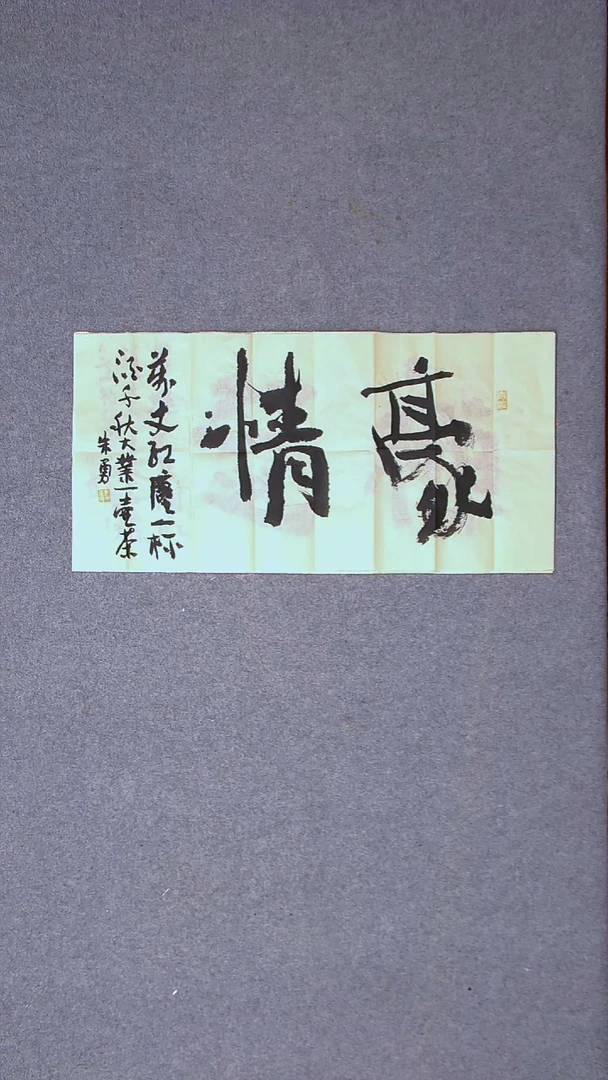 豪情
萬丈紅塵一杯
酒千秋大業一壺茶
朱勇